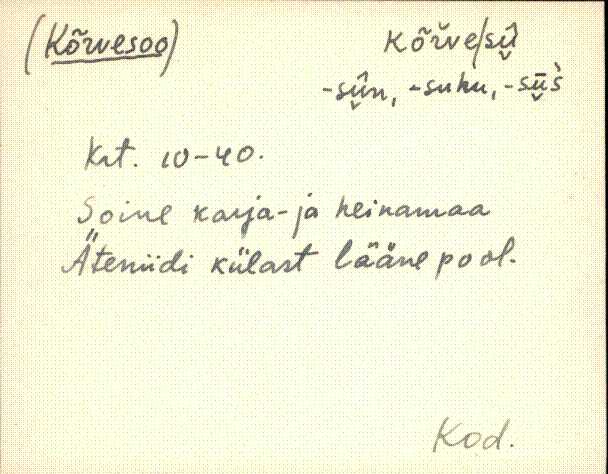 (Kõrvesoo)
kõřve/sụ̄̂
-sụ̄̂n, -suhu, -sụ̄s̀
Krt. 10-40.
Soine karja-ja heinamaa
Äteniidi külast lääne pool.
Kod.